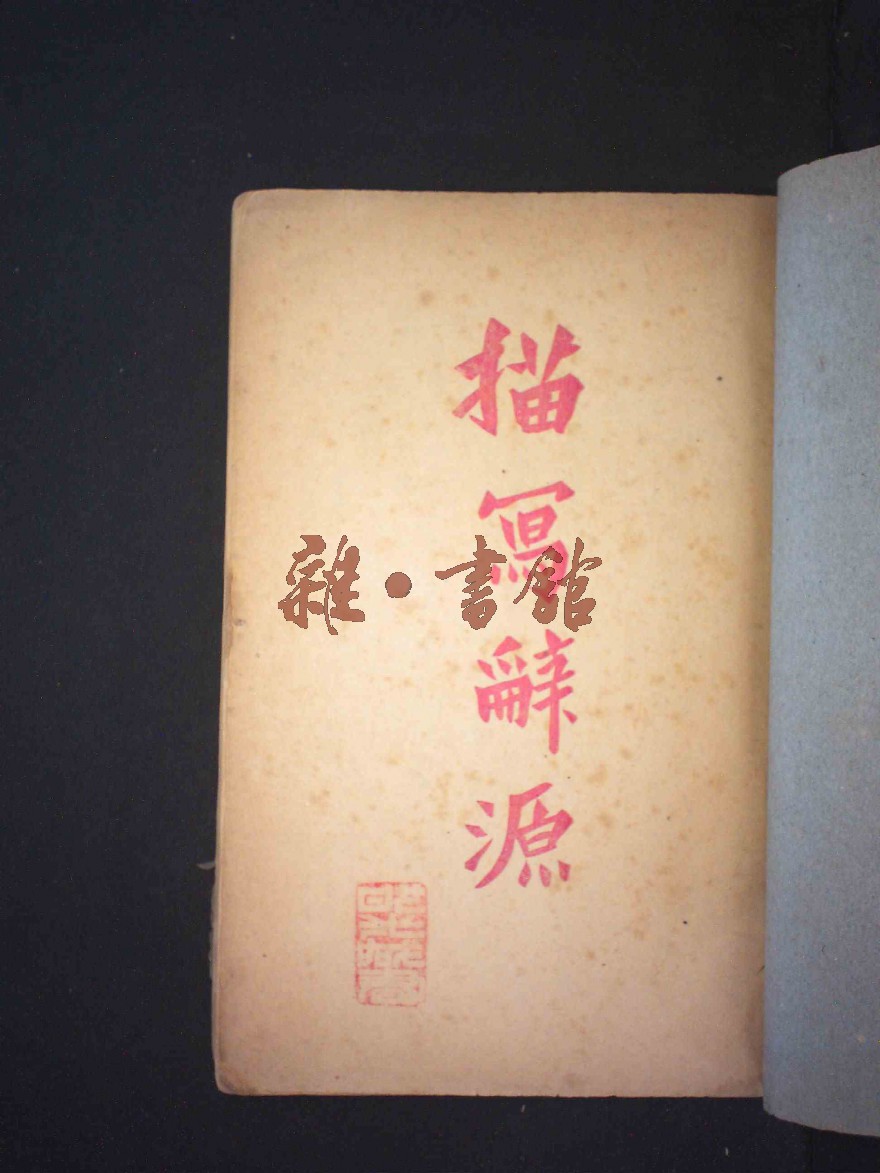 描寫辭源
雜·書館